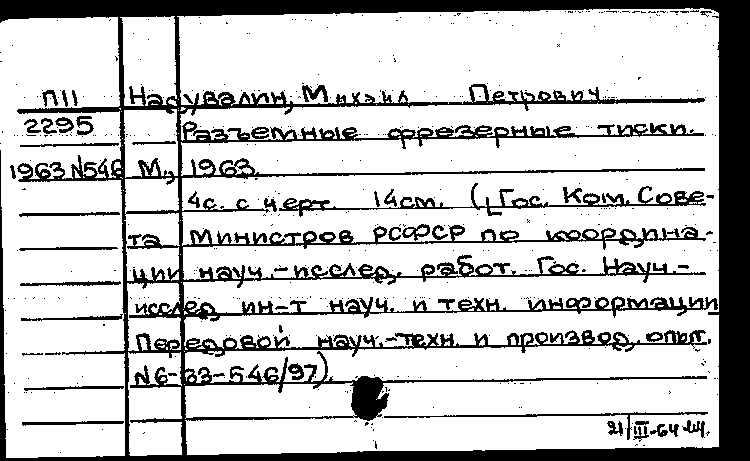 П11 Надувалин, Михаил Петрович
2295 Разъемные фрезерные тиски.
1963 N546 М., 1963.
4с. с черт. 14см. (Гос. Ком. Сове-
та Министров РСФСР по координа-
ции науч.-исслед. работ. Гос. Науч.-
исслед. ин-т науч. и техн. информации
Передовой науч.-техн. и производ. опыт.
N6-63-546/97).
21/III-64